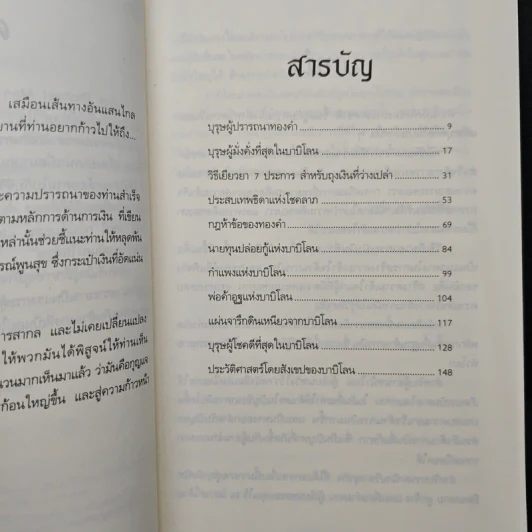 เสมือนเส้นทางอันแสนไกล
ยานที่ท่านอยากก้าวไปให้ถึง...
ะความปรารถนาของท่านสำเร็จ
ตามหลักการด้านการเงิน ที่เขียน
เหล่านั้นช่วยชี้แนะท่านให้หลุดพ้น
รณ์พูนสุข ซึ่งกระเป๋าเงินที่อัดแน่น
ารสากล และไม่เคยเปลี่ยนแปลง
ให้พวกมันได้พิสูจน์ให้ท่านเห็น
นวนมากเห็นมาแล้ว ว่ามันคือกุญแจ
ก้อนใหญ่ขึ้น และสู่ความก้าวหน้า
สารบัญ
บุรุษผู้ปรารถนาทองคำ 9
บุรุษผู้มั่งคั่งที่สุดในบาบิโลน 17
วิธีเยียวยา 7 ประการ สำหรับถุงเงินที่ว่างเปล่า 31
ประสบเทพธิดาแห่งโชคลาภ 53
กฎห้าข้อของทองคำ 69
นายทุนปล่อยกู้แห่งบาบิโลน 84
กำแพงแห่งบาบิโลน 99
พ่อค้าอูฐแห่งบาบิโลน 104
แผ่นจารึกดินเหนียวจากบาบิโลน 117
บุรุษผู้โชคดีที่สุดในบาบิโลน 128
ประวัติศาสตร์โดยสังเขปของบาบิโลน 148